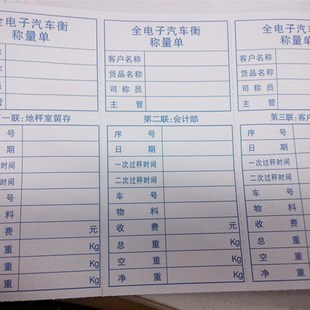 全电子汽车衡
称量单
称
称
员
管
一联:地秤室留存
号
期
时间
时间
号
料
费 元
重 Kg
重 Kg
重 Kg
全电子汽车衡
称量单
客户名称
货品名称
司称员
主管
第二联:会计部
序号
日期
一次过秤时间
二次过秤时间
车号
物料
收费 元
总重 Kg
空重 Kg
净重 Kg
全电子汽车衡
称量单
客户名称
货品名称
司称员
主管
第三联:客
序号
日期
一次过秤时间
二次过秤时间
车号
物料
收费
总重
空重
净重